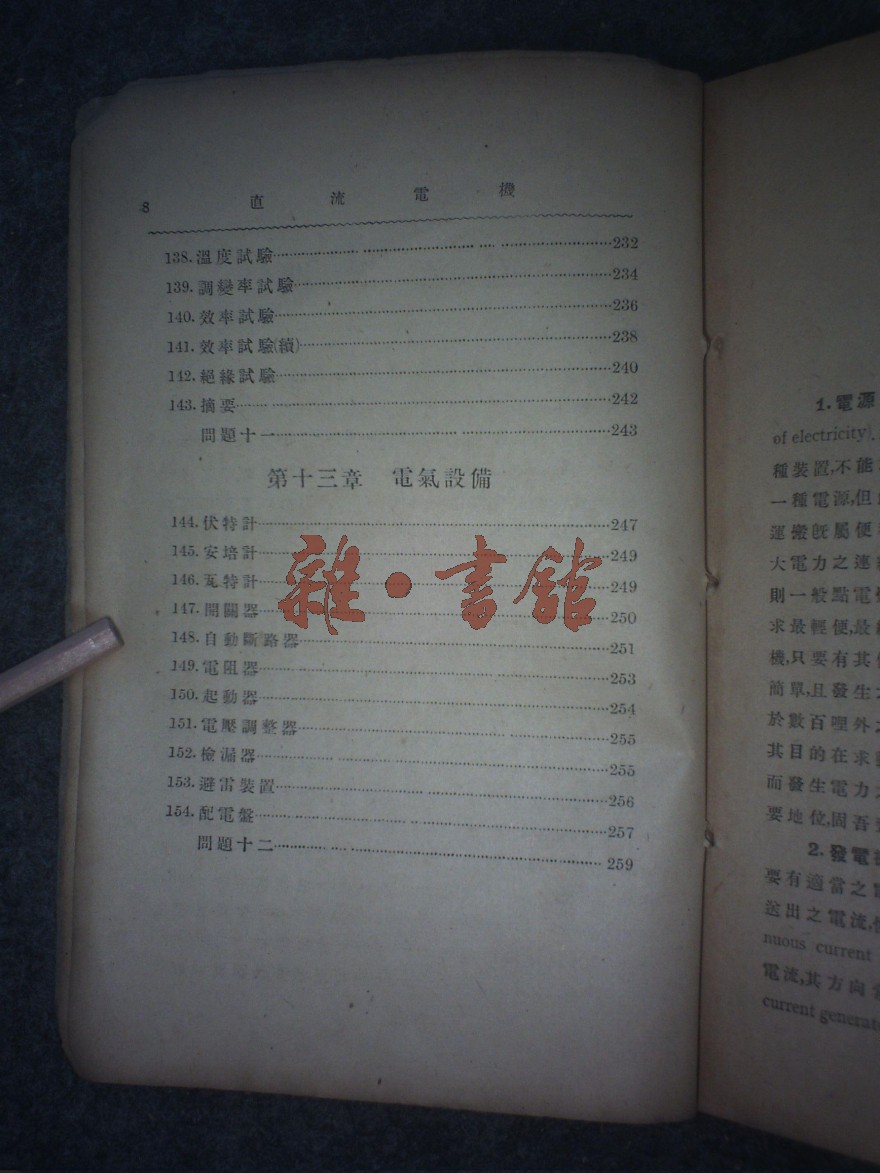 8 直流電機
138.溫度試驗 232
139.調變率試驗 234
140.效率試驗 236
141.效率試驗(續) 238
142.絕緣試驗 240
143.摘要 242
問題十一 243
第十三章 電氣設備
144.伏特計 247
145.安培計 249
146.瓦特計 249
147.開關器 250
148.自動斷路器 251
149.電阻器 253
150.起動器 254
151.電壓調整器 255
152.檢漏器 255
153.避雷裝置 256
154.配電盤 257
問題十二 259
雜·書館
1.電源
of electricity).
種裝置,不能
一種電源,但
運搬旣屬便
大電力之連
則一般點電
求最輕便,最
機,只要有其
簡單,且發生
於數百哩外
其目的在求
而發生電力
要地位,固吾
2.發電
要有適當之
送出之電流,
nuous current
電流,其方向
current generat